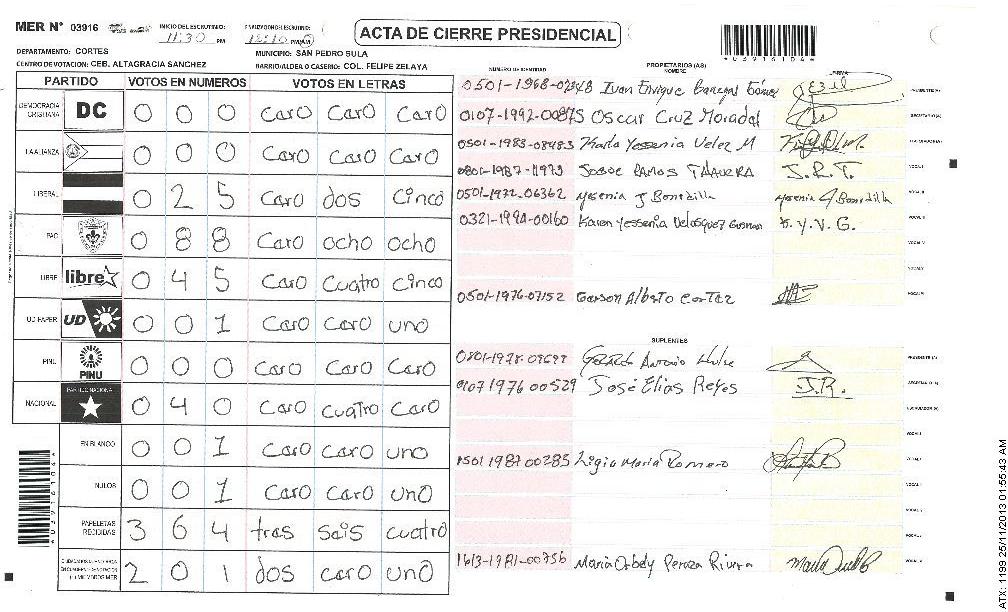 MER N° 03916
INICIO DEL ESCRUTINIO:
11:30 PM
ACTA DE CIERRE PRESIDENCIAL
DEPARTAMENTO: CORTES
MUNICIPIO: SAN PEDRO SULA
CENTRO DE VOTACION: CEB. ALTAGRACIA SANCHEZ
BARRIO/ALDEA O CASERIO: COL. FELIPE ZELAYA
PARTIDO VOTOS EN NUMEROS VOTOS EN LETRAS
DEMOCRACIA CRISTIANA DC 0 0 0 Caro Caro Caro
LA ALIANZA 0 0 0 Caro Caro Caro
LIBERAL 0 2 5 Caro dos Cinco
PAC 0 8 8 Caro ocho ocho
LIBRE libre 0 4 5 Caro Cuatro Cinco
UD-FAPER UD 0 0 1 Caro Caro uno
PINU PINU 0 0 0 Caro Caro Caro
NACIONAL PARTIDO NACIONAL 0 4 0 Caro Cuatro Caro
EN BLANCO 0 0 1 Caro Caro uno
NULOS 0 0 1 Caro Caro uno
PAPELETAS RECIBIDAS 3 6 4 tras sais cuatro
2 0 1 dos Caro uno
NUMERO DE IDENTIDAD PROPIETARIOS (AS) NOMBRE FIRMA
Ivan Enrique
Oscar Cruz
0501-1983-08483 Karla Yessenia Velez M
Josue Ramos J.R.T.
0501-1972-06362 Yesenia J Bonedilla
0321-1994-00160 Karen Yessenia Velasquez K.Y.V.G.
0501-1976-07152 Gerson Alberto Cortez
SUPLENTES
Antonio
0107 1976 00529 José Elias Reyes J.R.
0501 1987 00285 Ligia Maria Romero
1613-1981-00756 Maria Orbely Peraza Rivera
*03916104*
*03916104*
ATX: 1199 25/11/2013 01:55:43 AM